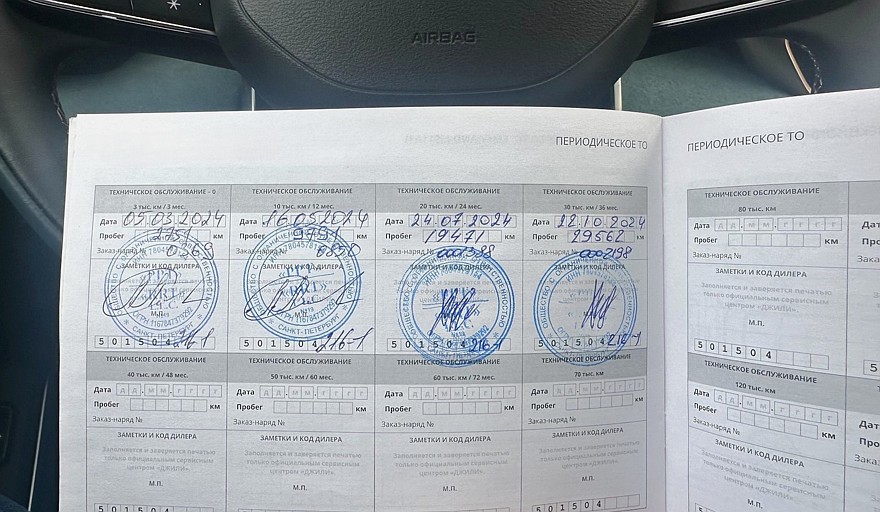 AIRBAG
ПЕРИОДИЧЕСКОЕ ТО
ТЕХНИЧЕСКОЕ ОБСЛУЖИВАНИЕ - 0
3 тыс. км / 3 мес.
Дата 05.03.2024
Пробег
Заказ-наряд №
ЗАМЕТКИ И КОД ДИЛЕРА
САНКТ-ПЕТЕРБУРГ
501504 216-1
ТЕХНИЧЕСКОЕ ОБСЛУЖИВАНИЕ
10 тыс. км / 12 мес.
Дата 16.05.2024
Пробег 9791 км
Заказ-наряд №
ЗАМЕТКИ И КОД ДИЛЕРА
САНКТ-ПЕТЕРБУРГ
501504 216-1
ТЕХНИЧЕСКОЕ ОБСЛУЖИВАНИЕ
20 тыс. км / 24 мес.
Дата 24.07.2024
Пробег 19471 км
Заказ-наряд №
ЗАМЕТКИ И КОД ДИЛЕРА
501504 216-1
ТЕХНИЧЕСКОЕ ОБСЛУЖИВАНИЕ
30 тыс. км / 36 мес.
Дата 22.10.2024
Пробег 29562 км
Заказ-наряд № 0002198
ЗАМЕТКИ И КОД ДИЛЕРА
501504 216-1
ТЕХНИЧЕСКОЕ ОБСЛУЖИВАНИЕ
40 тыс. км / 48 мес.
Дата дд.мм.гггг
Пробег км
Заказ-наряд №
ЗАМЕТКИ И КОД ДИЛЕРА
Заполняется и заверяется печатью
только официальным сервисным
центром «ДЖИЛИ».
М.П.
501504
ТЕХНИЧЕСКОЕ ОБСЛУЖИВАНИЕ
50 тыс. км / 60 мес.
Дата дд.мм.гггг
Пробег км
Заказ-наряд №
ЗАМЕТКИ И КОД ДИЛЕРА
Заполняется и заверяется печатью
только официальным сервисным
центром «ДЖИЛИ».
М.П.
501504
ТЕХНИЧЕСКОЕ ОБСЛУЖИВАНИЕ
60 тыс. км / 72 мес.
Дата дд.мм.гггг
Пробег км
Заказ-наряд №
ЗАМЕТКИ И КОД ДИЛЕРА
Заполняется и заверяется печатью
только официальным сервисным
центром «ДЖИЛИ».
М.П.
501504
ТЕХНИЧЕСКОЕ ОБСЛУЖИВАНИЕ
70 тыс. км
Дата дд.мм.гггг
Пробег км
Заказ-наряд №
ЗАМЕТКИ И КОД ДИЛЕРА
Заполняется и заверяется печатью
только официальным сервисным
центром «ДЖИЛИ».
М.П.
501504
ПЕРИОДИЧЕСКОЕ ТО
ТЕХНИЧЕСКОЕ ОБСЛУЖИВАНИЕ
80 тыс. км
Дата дд.мм.гггг
Пробег км
Заказ-наряд №
ЗАМЕТКИ И КОД ДИЛЕРА
Заполняется и заверяется печатью
только официальным сервисным
центром «ДЖИЛИ».
М.П.
501504
ТЕХНИЧЕСКОЕ ОБСЛУЖИВАНИЕ
120 тыс. км
Дата дд.мм.гггг
Пробег км
Заказ-наряд №
ЗАМЕТКИ И КОД ДИЛЕРА
Заполняется и заверяется печатью
только официальным сервисным
центром «ДЖИЛИ».
М.П.